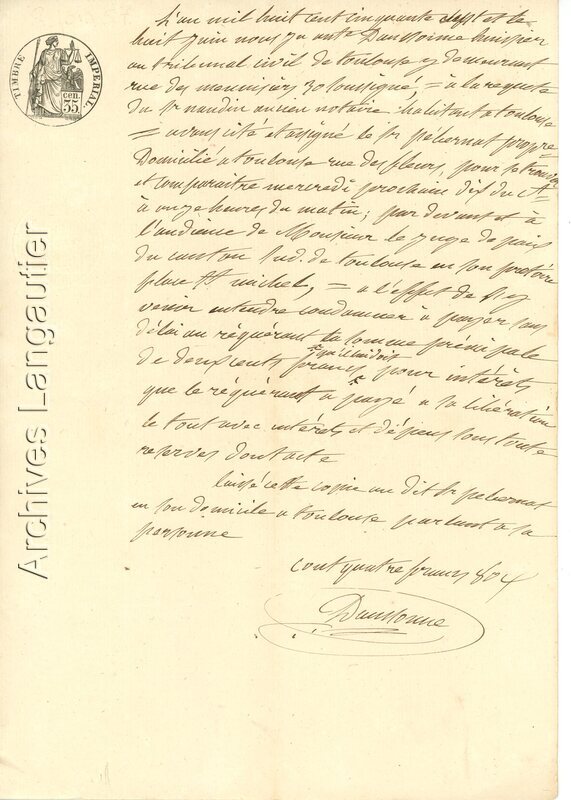 TIMBRE IMPERIAL
35 cen.
L'an mil huit cent cinquante sept et le
huit juin nous Daussonne huissier
au tribunal civil de toulouse y demeurant
rue des menuisiers 30 soussigné, = a la requete
du Sr naudin ancien notaire habitant a toulouse
= avons cité et assigné le Sr pébernat propre
Domicilié a toulouse rue des fleurs, pour se trouver
et comparaitre mercredi prochain dix du Ct
à onze heures du matin; par devant et à
l'audience de Monsieur le juge de paix
du canton sud. de toulouse en son prétoire
place St michel, = a l'effet de s'y
venir entendre condamner a payer sans
délai au réquérant la somme principale
qu'il lui doit
de deux cents francs pour intérêts
que le réquérant a payé a sa libération
le tout avec intérêts et dépens sous toute
reserves dont acte
laissé cette copie au dit Sr pebernat
en son domicile a toulouse parlant a sa
personne
cout quatre francs 80 c
Daussonne
Archives Langautier